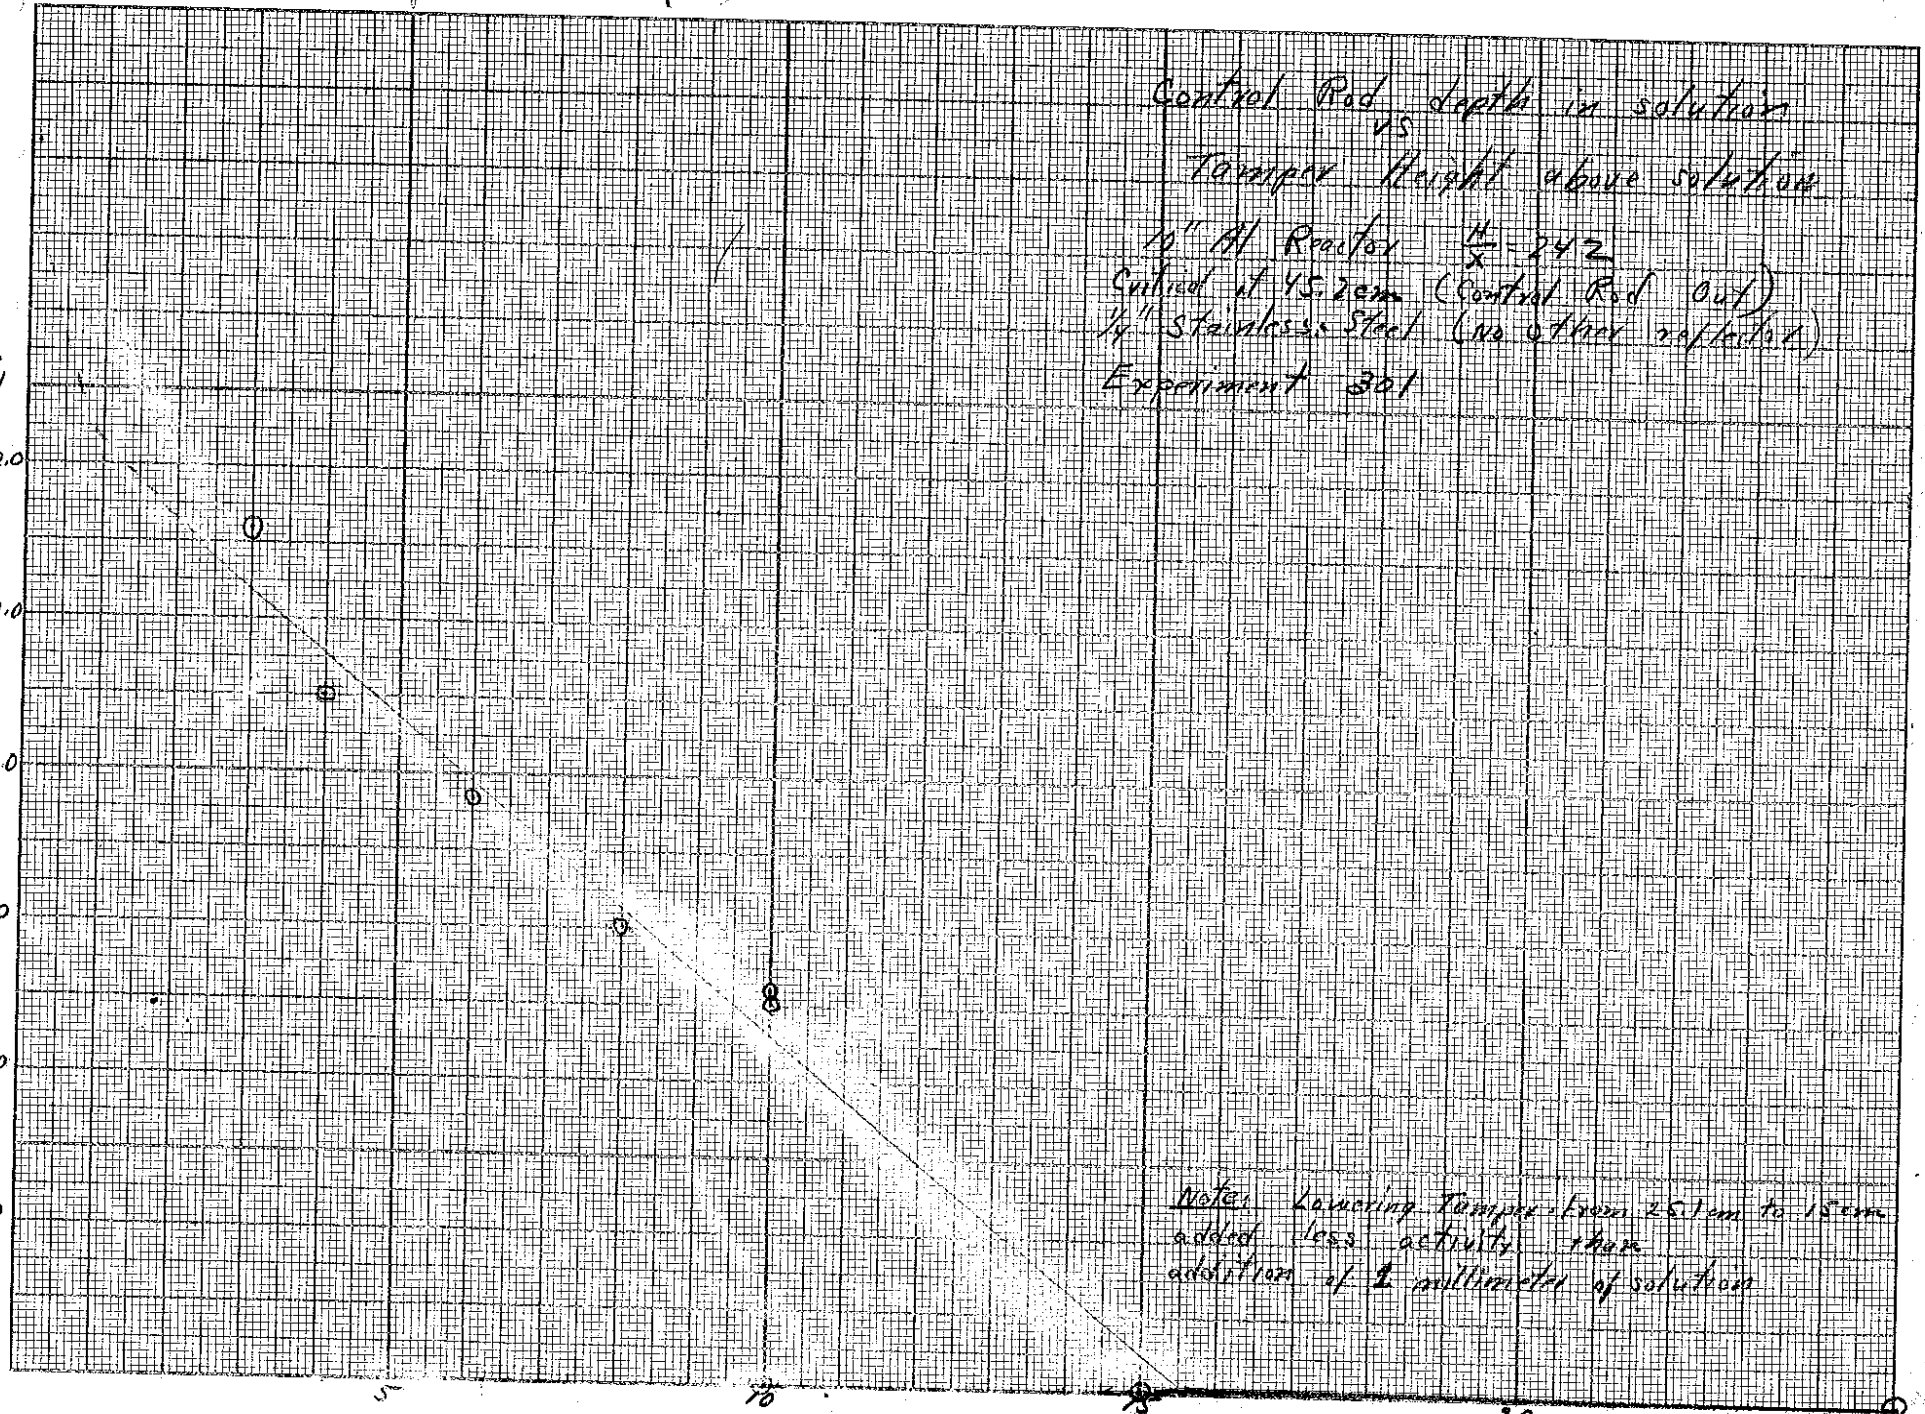 Control Rod depth in solution
vs
Tamper Height above solution
10" Al Reactor H/X = 242
Critical at 45.2 cm (Control Rod Out)
1/4" Stainless Steel (No other reflector)
Experiment 301
.0
.0
.0
0
0
Note: Lowering Tamper from 25.1 cm to 15 cm
added less activity than
addition of 1 millimeter of solution
5
10
15